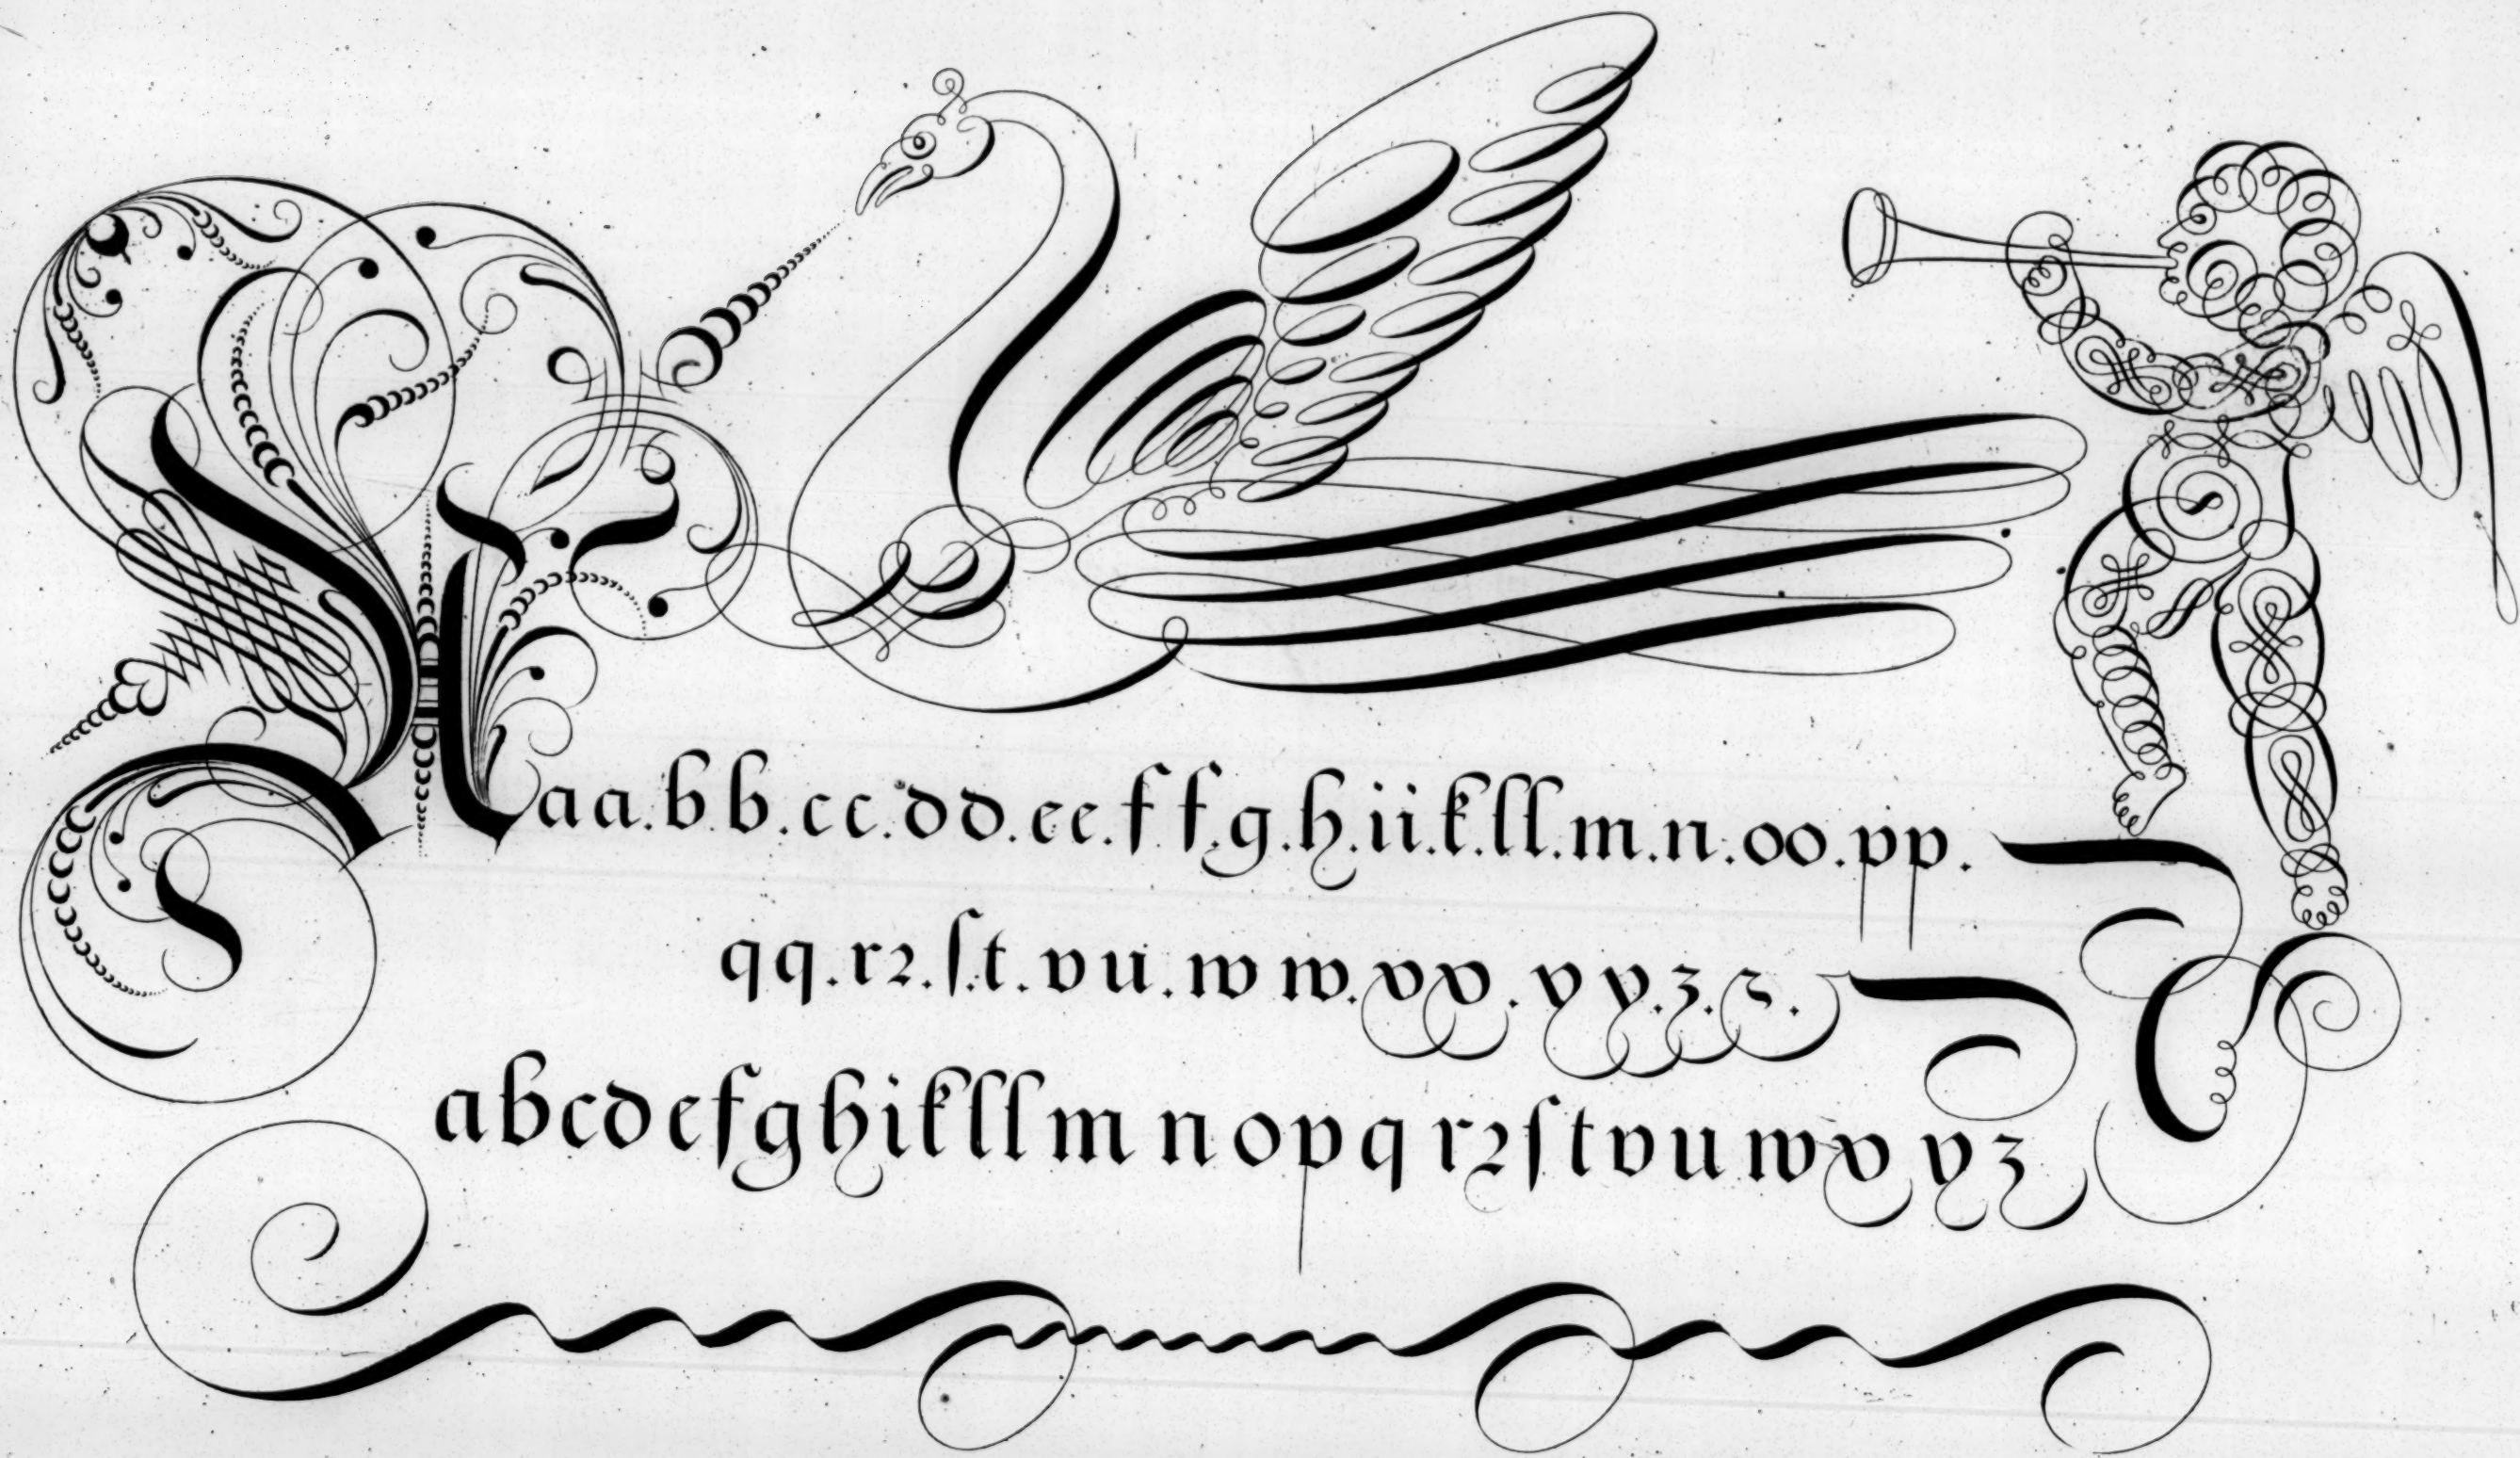 A aa.bb.cc.dd.ee.ff.g.h.ii.k.ll.m.n.oo.pp.
qq.rꝛ.ſt.vu.w w.xx.yy.z.z.
abcdefghikllmnopqrꝛſtvuwxyz